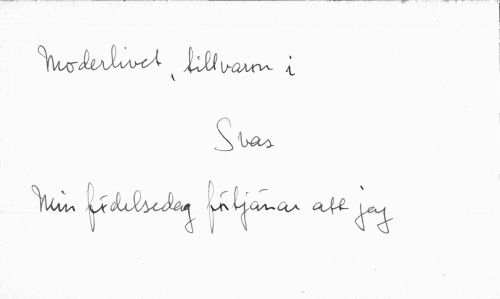 Moderlivet, tillvaron i
Svas
Min födelsedag förtjänar att jag